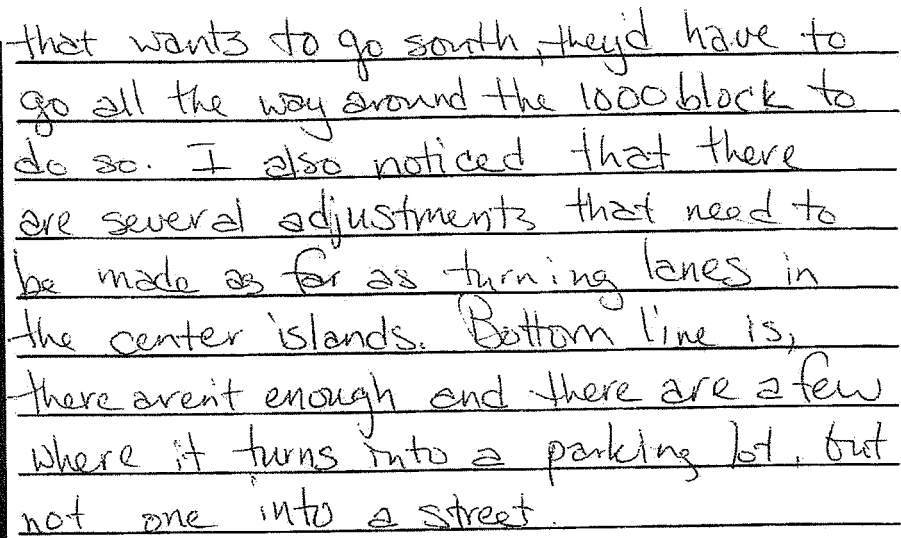 that wants to go south, they'd have to
go all the way around the 1000 block to
do so. I also noticed that there
are several adjustments that need to
be made as far as turning lanes in
the center islands. Bottom line is,
there aren't enough and there are a few
where it turns into a parking lot, but
not one into a street.